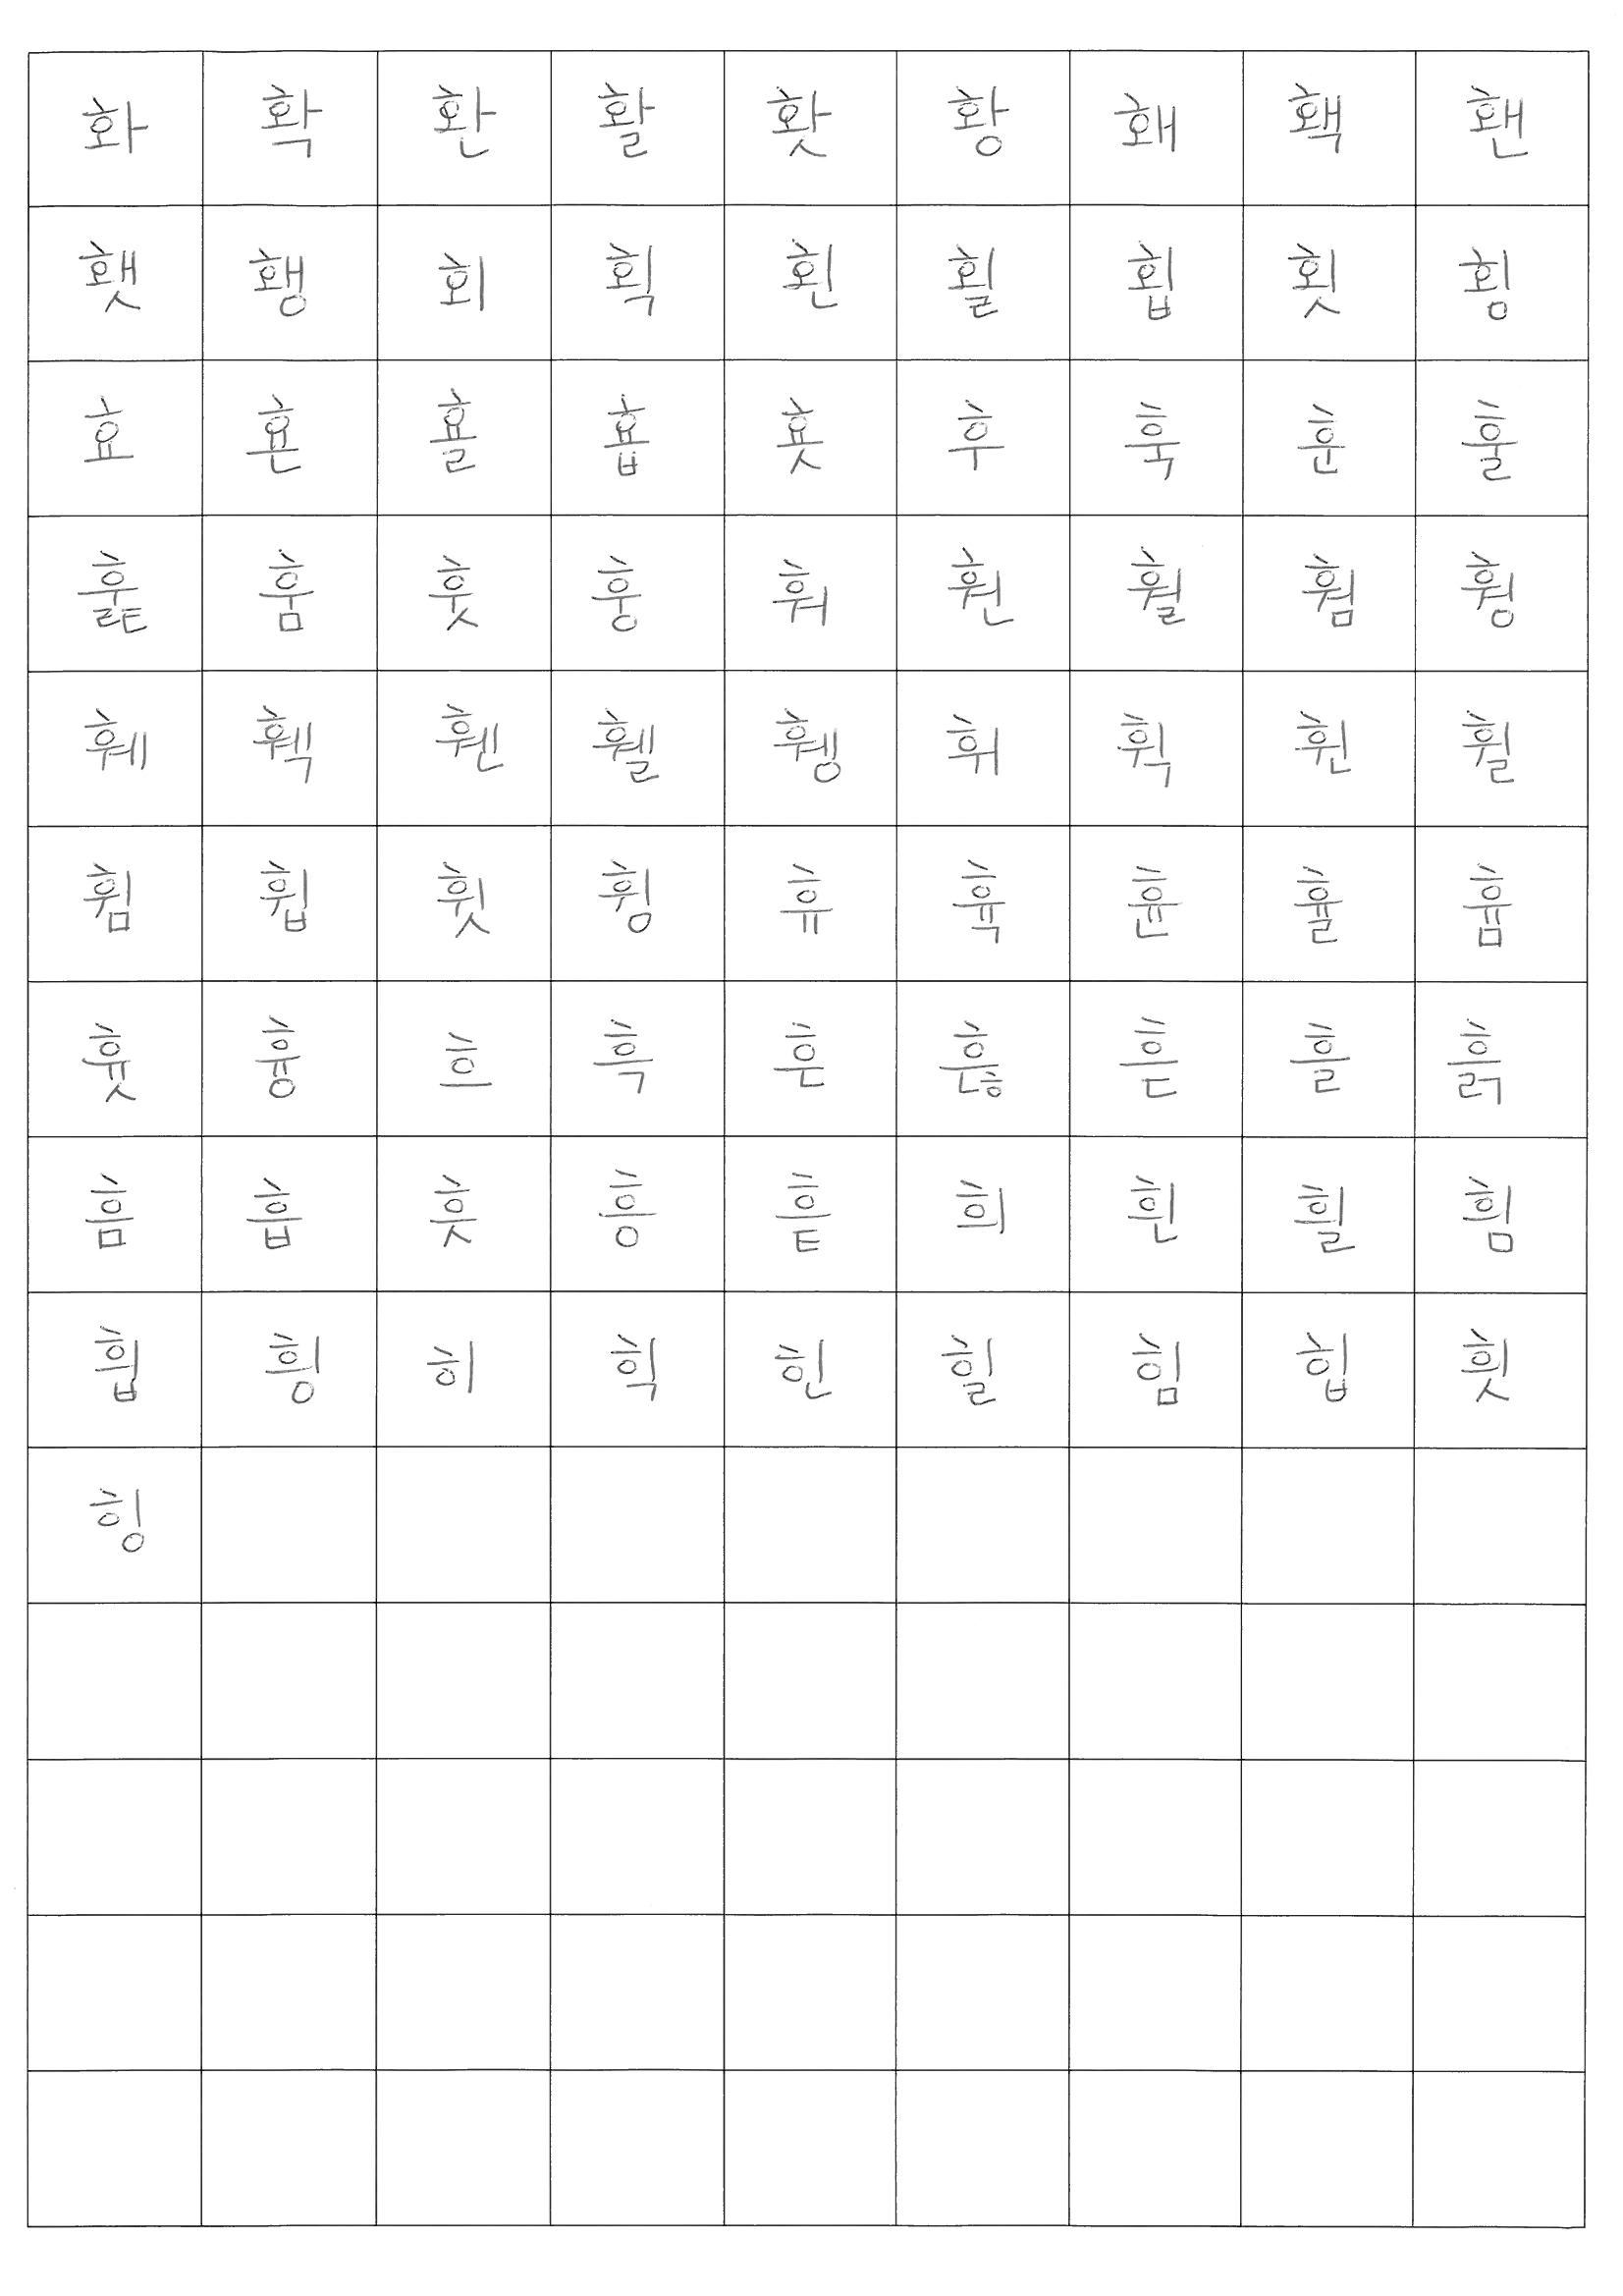 화 확 환 활 홧 황 홰 홱 홴
횃 횅 회 획 횐 횔 횝 횟 횡
효 횬 횰 횹 횻 후 훅 훈 훌
훑 훔 훗 훙 훠 훤 훨 훰 훵
훼 훽 휀 휄 휑 휘 휙 휜 휠
휨 휩 휫 휭 휴 휵 휸 휼 흄
흇 흉 흐 흑 흔 흖 흗 흘 흙
흠 흡 흣 흥 흩 희 흰 흴 흼
흽 힁 히 힉 힌 힐 힘 힙 흿
힝